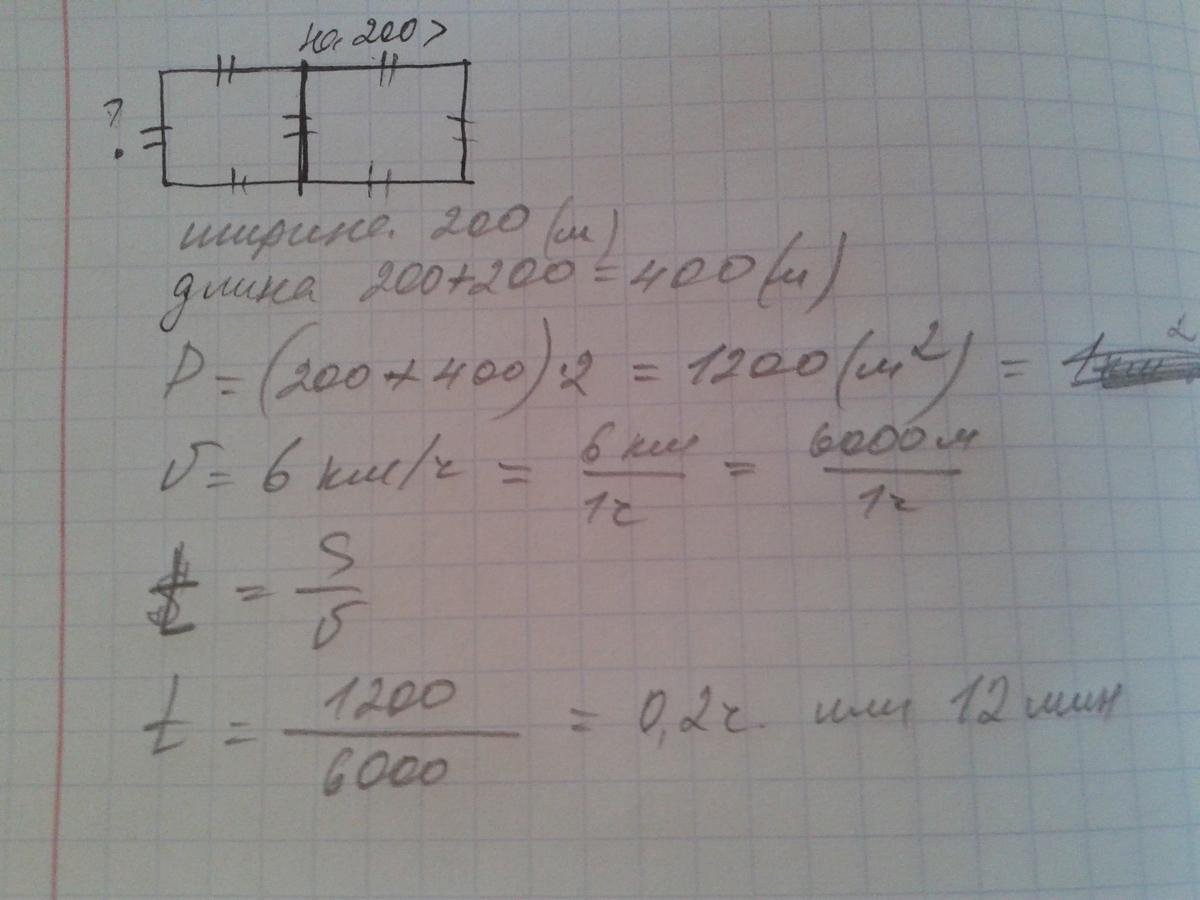 на 200 >
?
ширина 200 (м)
длина 200+200 = 400 (м)
P = (200 + 400) · 2 = 1200 (м²) =
υ = 6 км/ч = 6 км / 1ч = 6000 м / 1ч
t = S / υ
t = 1200 / 6000 = 0,2 ч или 12 мин